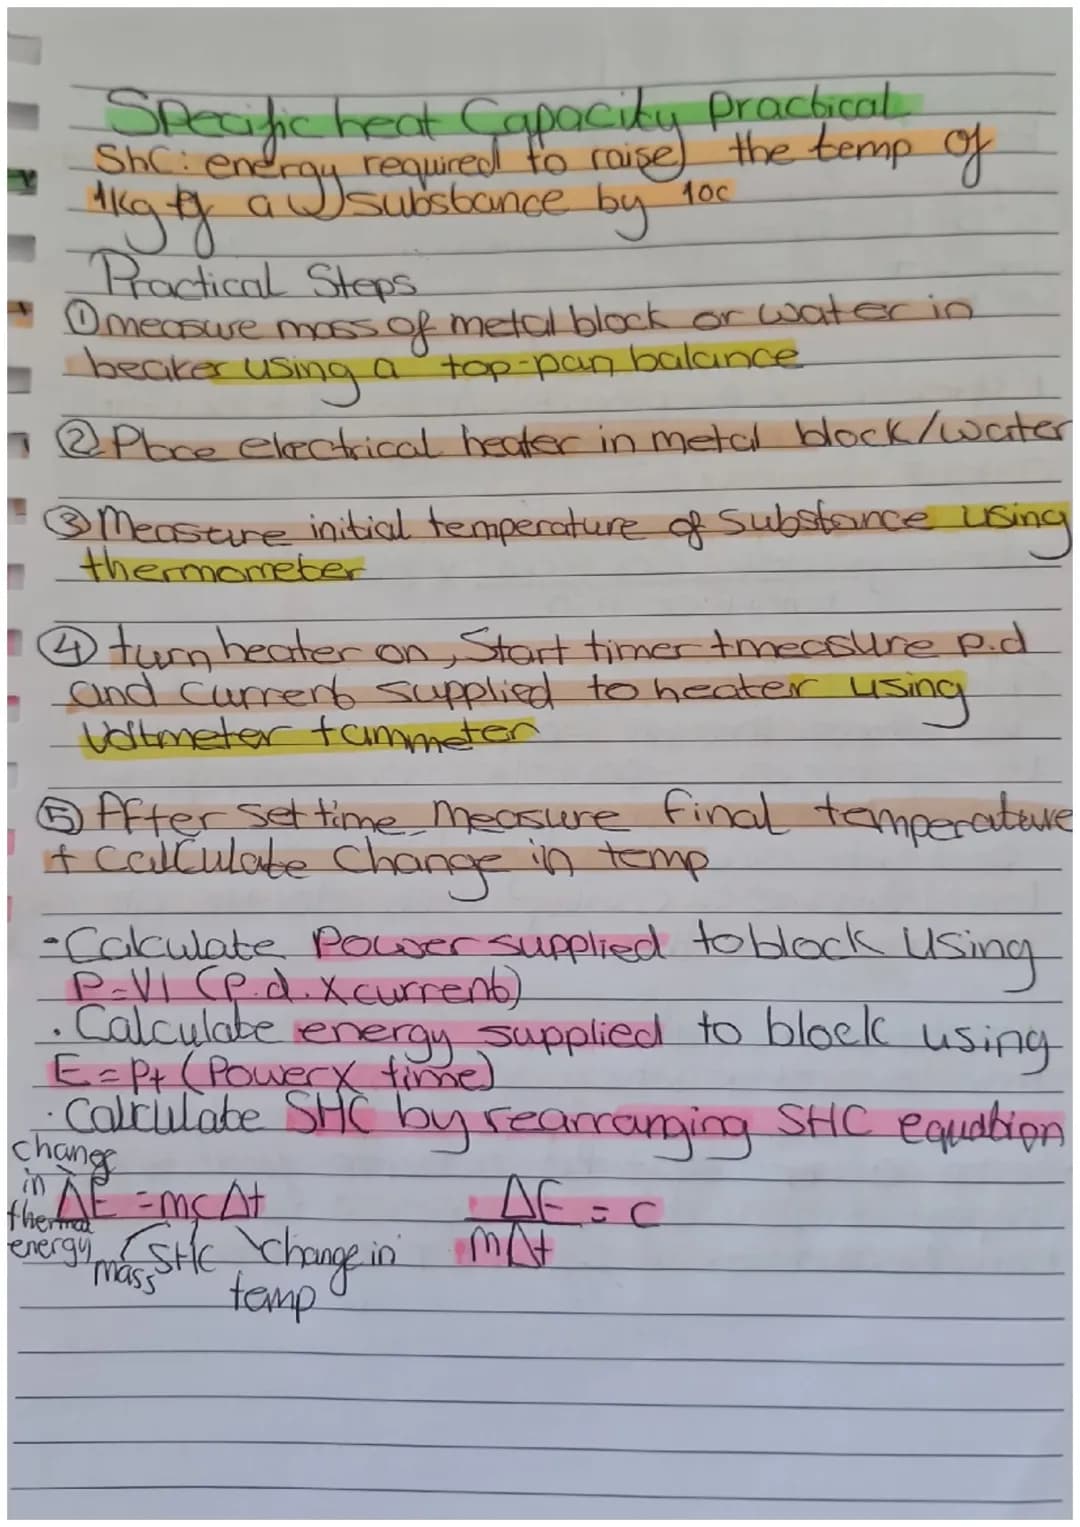 Specific heat Capacity Practical
ShC: energy required to raise the temp of
1kg of a substance by 1oc
Practical Steps
① measure mass of metal block or water in
beaker using a top-pan balance
② Place electrical heater in metal block/water
③ Measure initial temperature of substance using
thermometer
④ turn heater on, Start timer + measure p.d
and current supplied to heater using
Voltmeter + ammeter
⑤ After set time measure final temperature
+ calculate change in temp
- Calculate Power supplied to block using
P=VI (P.d. x current)
· Calculate energy supplied to block using
E=Pt (Power x time)
· Calculate SHC by rearranging SHC equation
change
in
thermal
energy
ΔE = mcΔt
mass
SHC
change in
temp
ΔE = c
mΔt